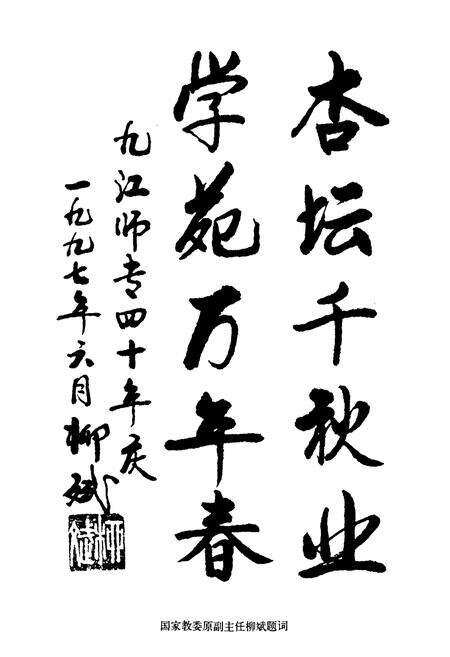 杏坛千秋业
学苑万年春
九江师专四十年庆
一九九七年六月柳斌
柳斌
国家教委原副主任柳斌题词